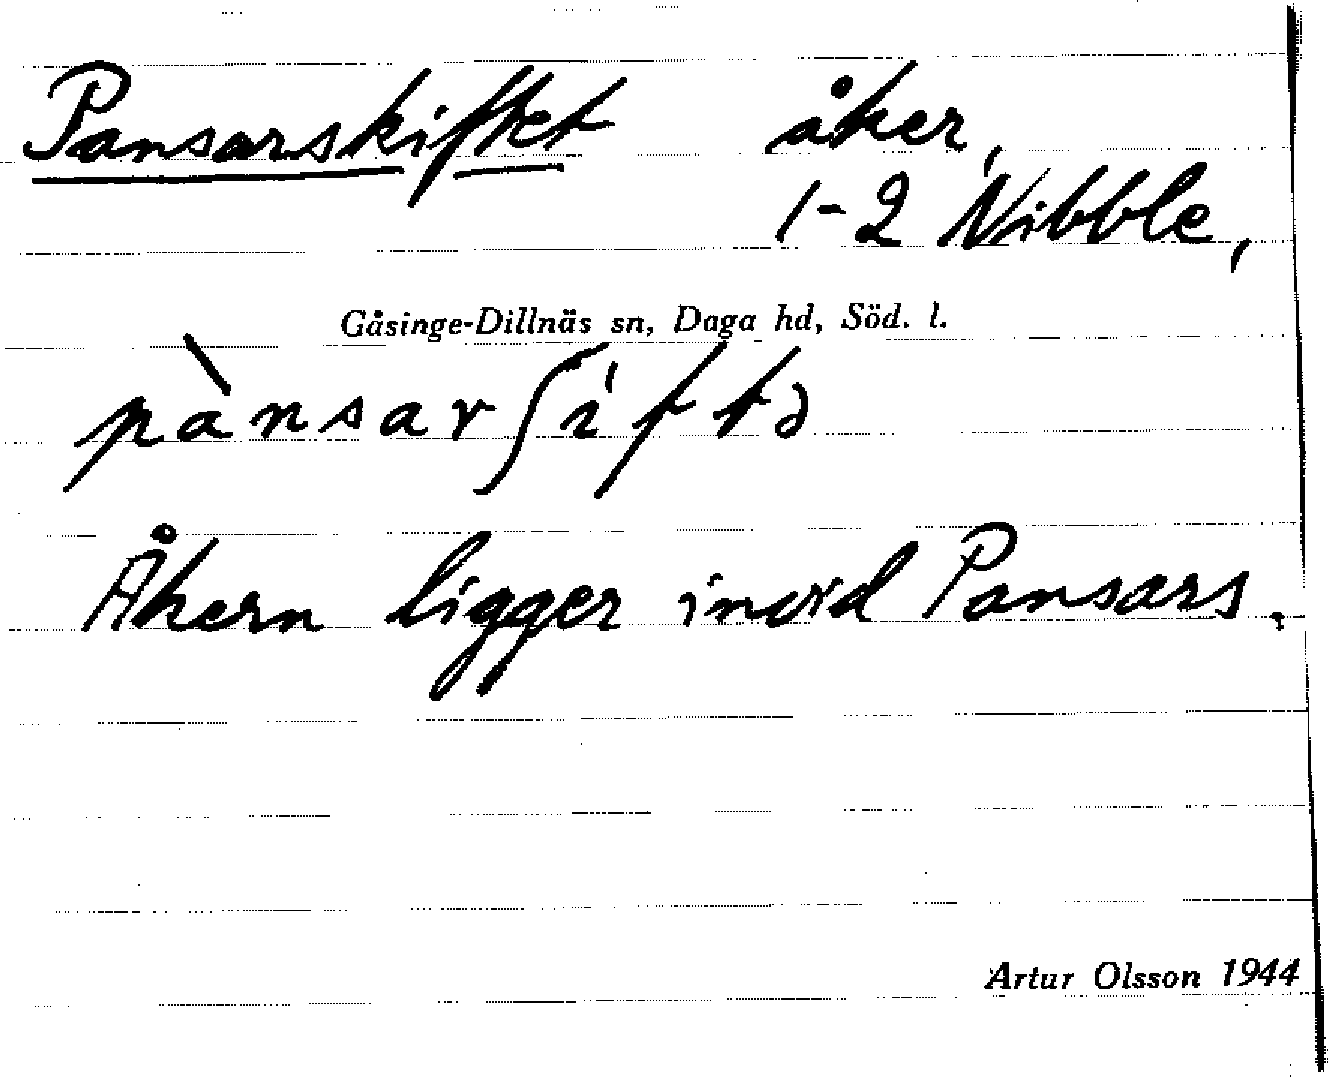 Pansarskiftet åker,
1-2 Nibble,
Gåsinge-Dillnäs sn, Daga hd, Söd. l.
pànsarʃíftə
Åkern ligger invid Pansars.
Artur Olsson 1944